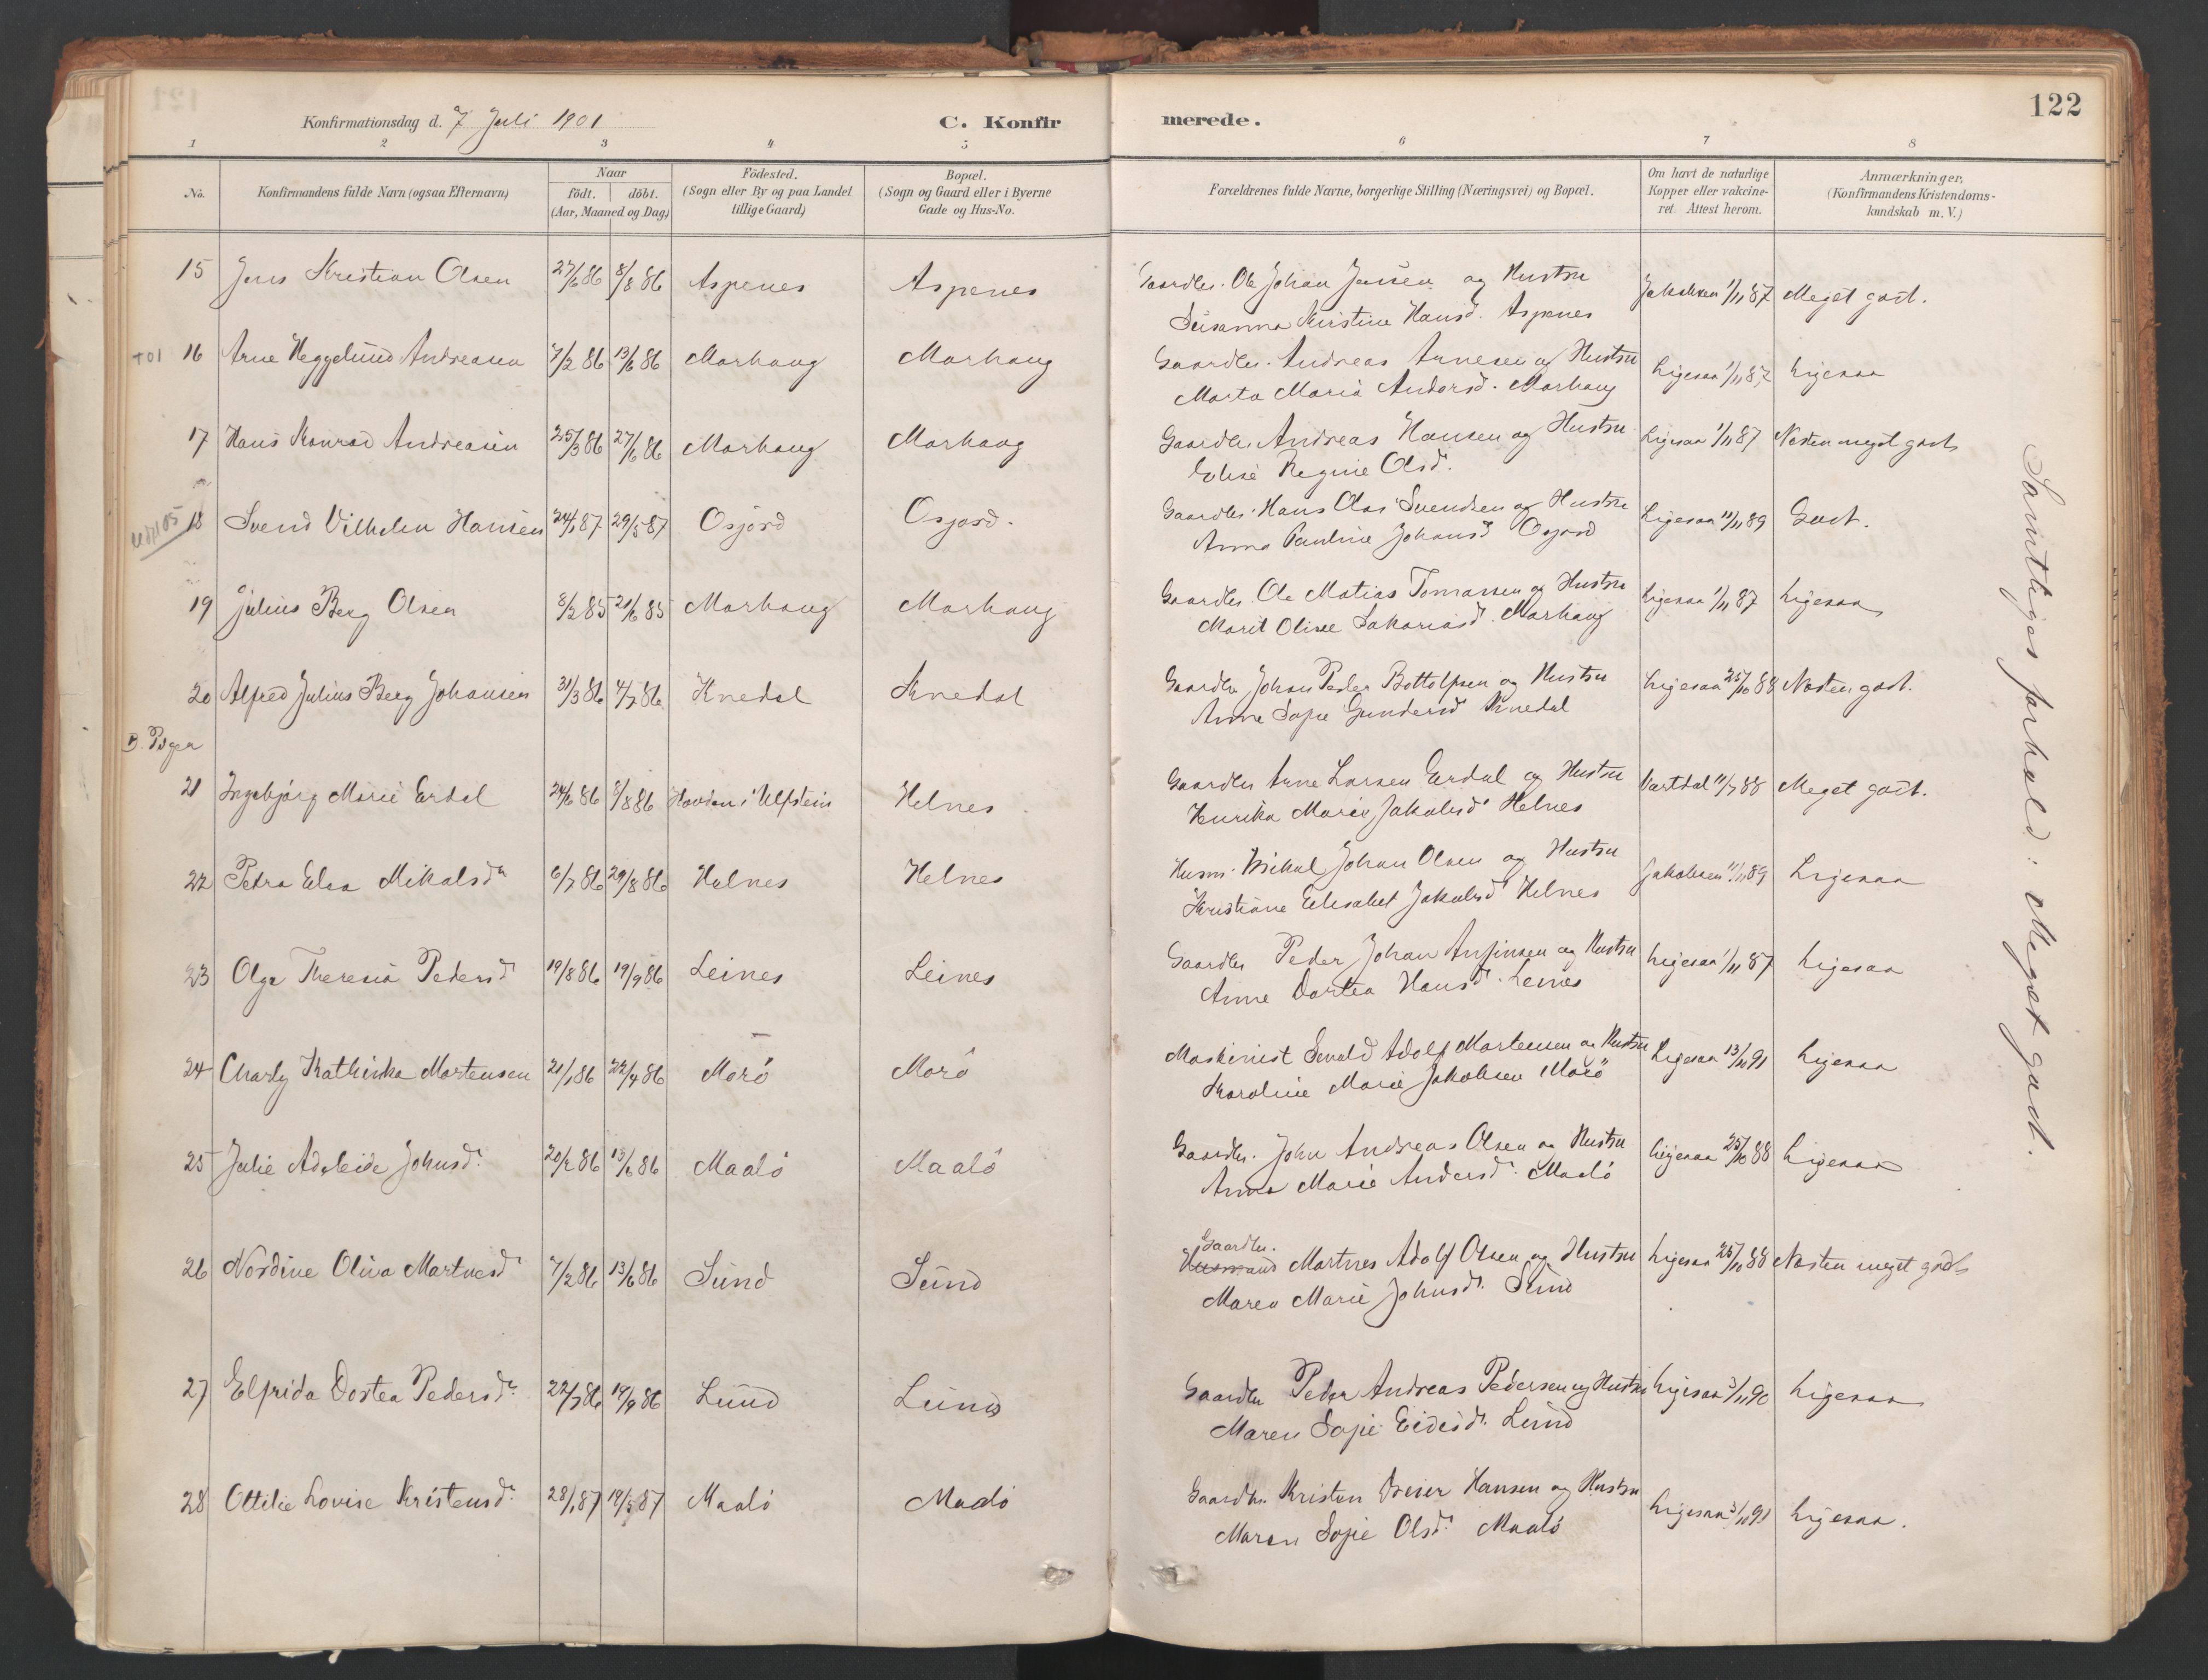 122
Konfirmationsdag d. 7 Juli 1901
C. Konfir
merede.
1 2 3 4 5 6 7 8
No.
Konfirmandens fulde Navn (ogsaa Efternavn)
Naar
födt. döbt.
(Aar, Maaned og Dag)
Födested.
(Sogn eller By og paa Landet
tillige Gaard)
Bopæl.
(Sogn og Gaard eller i Byerne
Gade og Hus-No.
Forældrenes fulde Navne, borgerlige Stilling (Næringsvei) og Bopæl.
Om havt de naturlige
Kopper eller vakcine-
ret. Attest herom.
Anmærkninger,
(Konfirmandens Kristendoms-
kundskab m. V.)
15 Jens Kristian Olsen 27/6 86 8/8 86 Aspenes Aspenes Gaardbr. Ole Johan Jensen og Hustru Jakobsen 1/11 87 Meget godt.
Susanna Kristine Hansd. Aspenes
+01 16 Arne Heggelund Andreasen 7/2 86 13/6 86 Marhaug Marhaug Gaardbr. Andreas Arnesen og Hustru Ligesaa 1/11 87 Ligesaa
Marta Maria Andersd. Marhaug
17 Hans Konrad Andreasen 25/3 86 27/6 86 Marhaug Marhaug Gaardbr. Andreas Hansen og Hustru Ligesaa 1/11 87 Næsten meget godt
Elise Regine Olsd.
18 Svend Vilhelm Hansen 24/1 87 29/5 87 Osjord Osjord. Gaardbr. Hans Olai Svendsen og Hustru Ligesaa 11/11 89 Godt.
Anna Pauline Johansd Osjord
19 Julius Berg Olsen 8/2 85 21/6 85 Marhaug Marhaug Gaardbr. Ole Matias Tomassen og Hustru Ligesaa 1/11 87 Ligesaa
Marit Olise Sakariasd. Marhaug
20 Alfred Julius Berg Johansen 31/3 86 4/7 86 Knedal Knedal Gaardbr Johan Peder Bottolfsen og Hustru Ligesaa 25/10 88 Næsten godt.
Anne Sofie Gundersd Knedal
B. Piger
21 Ingebjørg Marie Erdal 24/6 86 8/8 86 Havden i Ulfstein Helnes Gaardbr Arne Larsen Erdal og Hustru Vartdal 11/7 88 Meget godt.
Henrika Marie Jakobsd Helnes
22 Petra Elsa Mikalsdr 6/7 86 29/8 86 Helnes Helnes Husm. Mikal Johan Olsen og Hustru Jakobsen 11/11 89 Ligesaa
Kristiane Elisabet Jakobsd Helnes
23 Olga Theresia Pedersd 19/8 86 19/9 86 Leines Leines Gaardbr Peder Johan Anfinsen og Hustru Ligesaa 1/11 87 Ligesaa
Anne Dortea Hansd. Leines
24 Charly Kathinka Mortensen 21/1 86 22/4 86 Morö Morö Maskinist Sevald Adolf Mortensen og Hustru Ligesaa 13/10 91 Ligesaa
Karoline Marie Jakobsen Morö
25 Julie Adeleide Johnsd. 20/2 86 13/6 86 Maalö Maalö Gaardbr. John Andreas Olsen og Hustru Ligesaa 25/10 88 Ligesaa
Anna Marie Andersd. Maalö
26 Nordine Oliva Martnesd 7/2 86 13/6 86 Sund Sund Gaardbr. Husmand Martnes Adolf Olsen og Hustru Ligesaa 25/10 88 Næsten meget godt
Maren Marie Johnsd. Sund
27 Elfrida Dortea Pedersd. 22/7 86 19/9 86 Lund Lund Gaardbr Peder Andreas Pedersen og Hustru Ligesaa 3/11 90 Ligesaa
Maren Sofie Eidisd. Lund
28 Ottilie Lovise Kristensd. 28/1 87 19/5 87 Maalö Maalö Gaardbr. Kristen Dreier Hansen og Hustru Ligesaa 3/10 91 Ligesaa.
Maren Sofie Olsd. Maalö
Samtliges forhold: Meget godt.